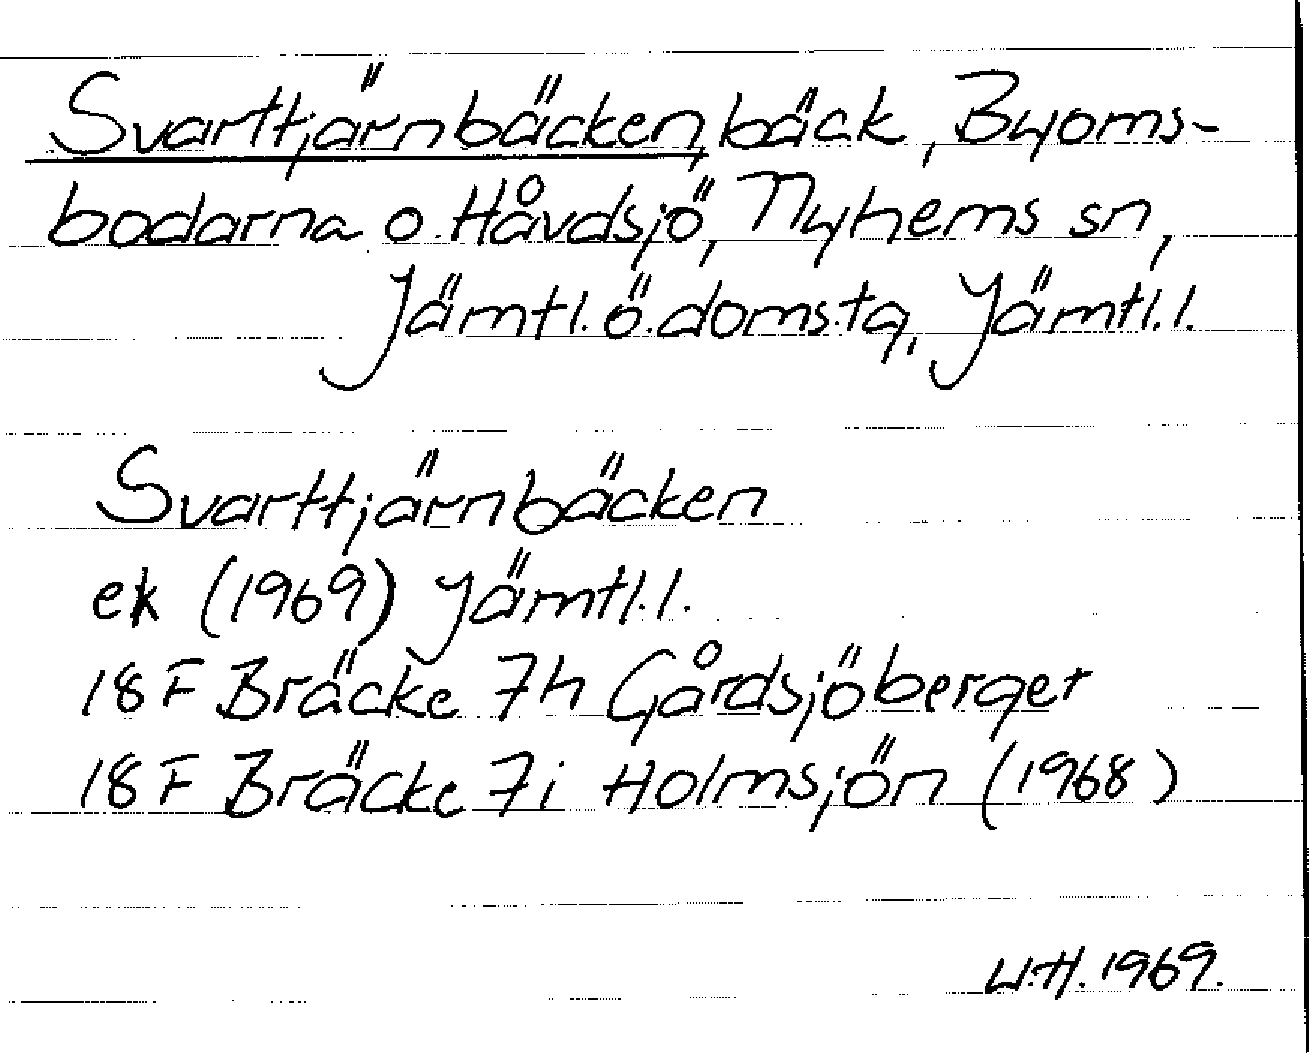 Svarttjärnbäcken, bäck, Byoms-
bodarna o. Håvdsjö, Nyhems sn,
Jämtl. ö. doms.tg, Jämtl. l.
Svarttjärnbäcken
ek (1969) Jämtl. l.
18 F Bräcke 7h Gårdsjöberget
18 F Bräcke 7i Holmsjön (1968)
U.H. 1969.